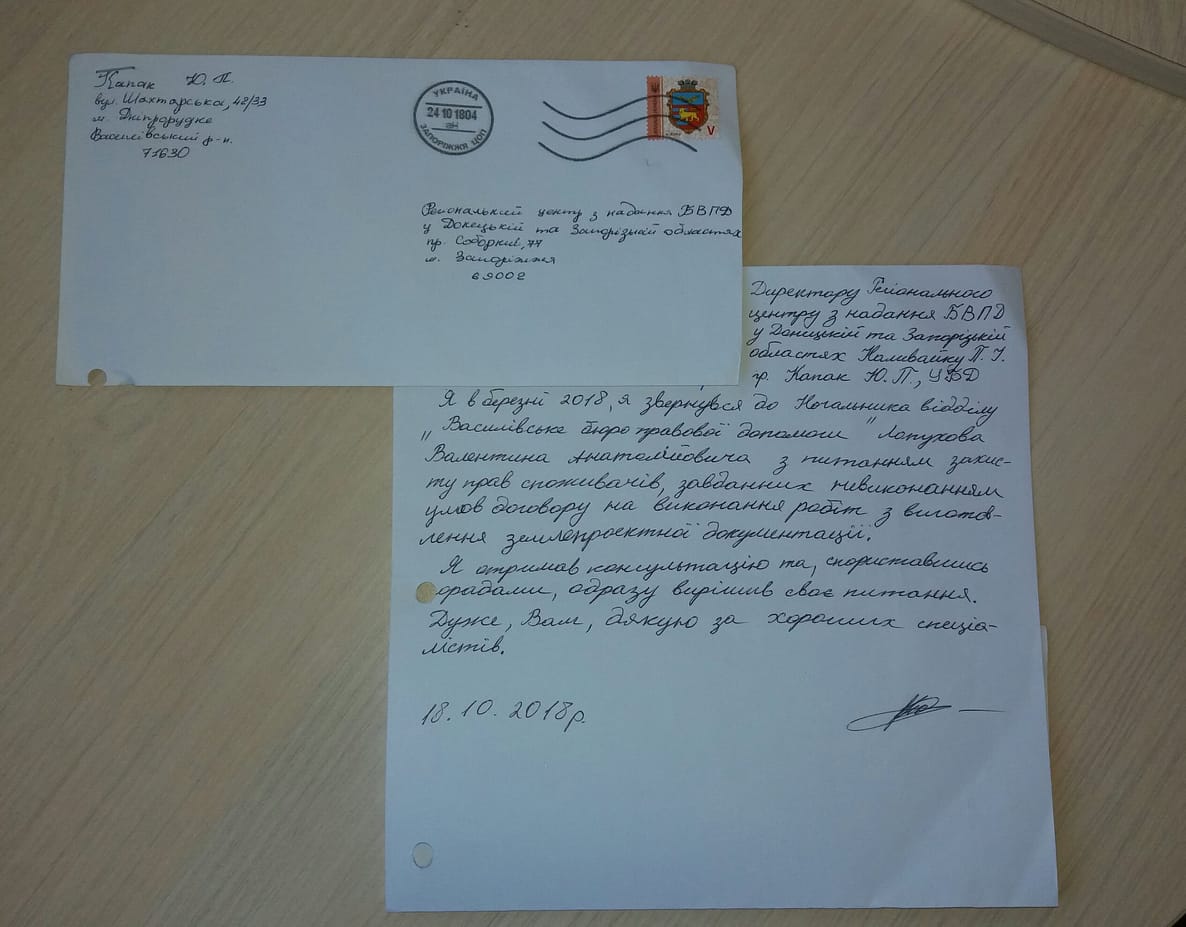 Капак Ю. П.
вул. Шахтарська, 42/33
м. Дніпрорудне
Василівський р-н.
71630
УКРАЇНА
24 10 1804
ЗАПОРІЖЖЯ ЦОП
V
Регіональний центр з надання БВПД
у Донецькій та Запорізькій областях
пр. Соборний, 77
м. Запоріжжя
69002
Директору Регіонального
центру з надання БВПД
у Донецькій та Запорізькій
областях Наливайку П. І.
гр. Капак Ю. П., УБД
Я в березні 2018, я звернувся до Начальника відділу
"Василівське бюро правової допомоги" Лопухова
Валентина Анатолійовича з питанням захис-
ту прав споживачів, завданних невиконанням
умов договору на виконання робіт з виготов-
лення землепроектної документації.
Я отримав консультацію та, спориставшись
порадами, одразу вирішив своє питання.
Дуже, Вам, дякую за хороших спеціа-
лістів.
18.10.2018р.